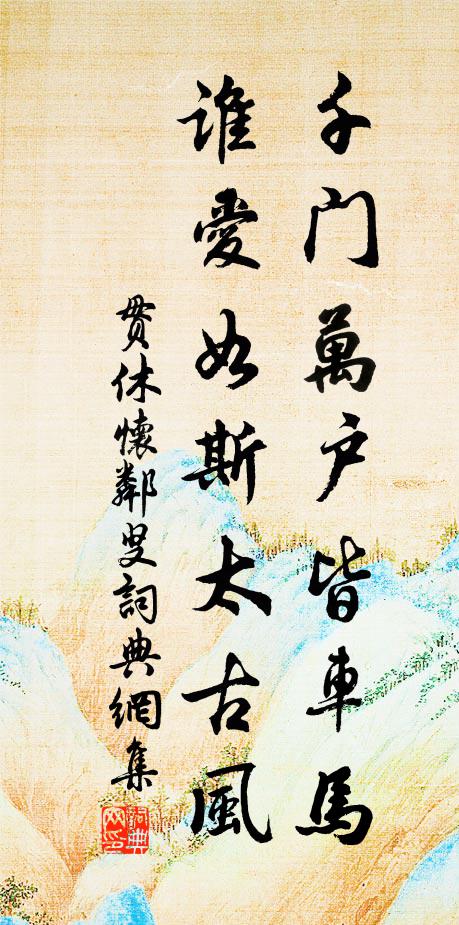 千門萬户皆車馬
誰愛如斯太古風
貫休懷鄰叟詞典網集
詞典
网印